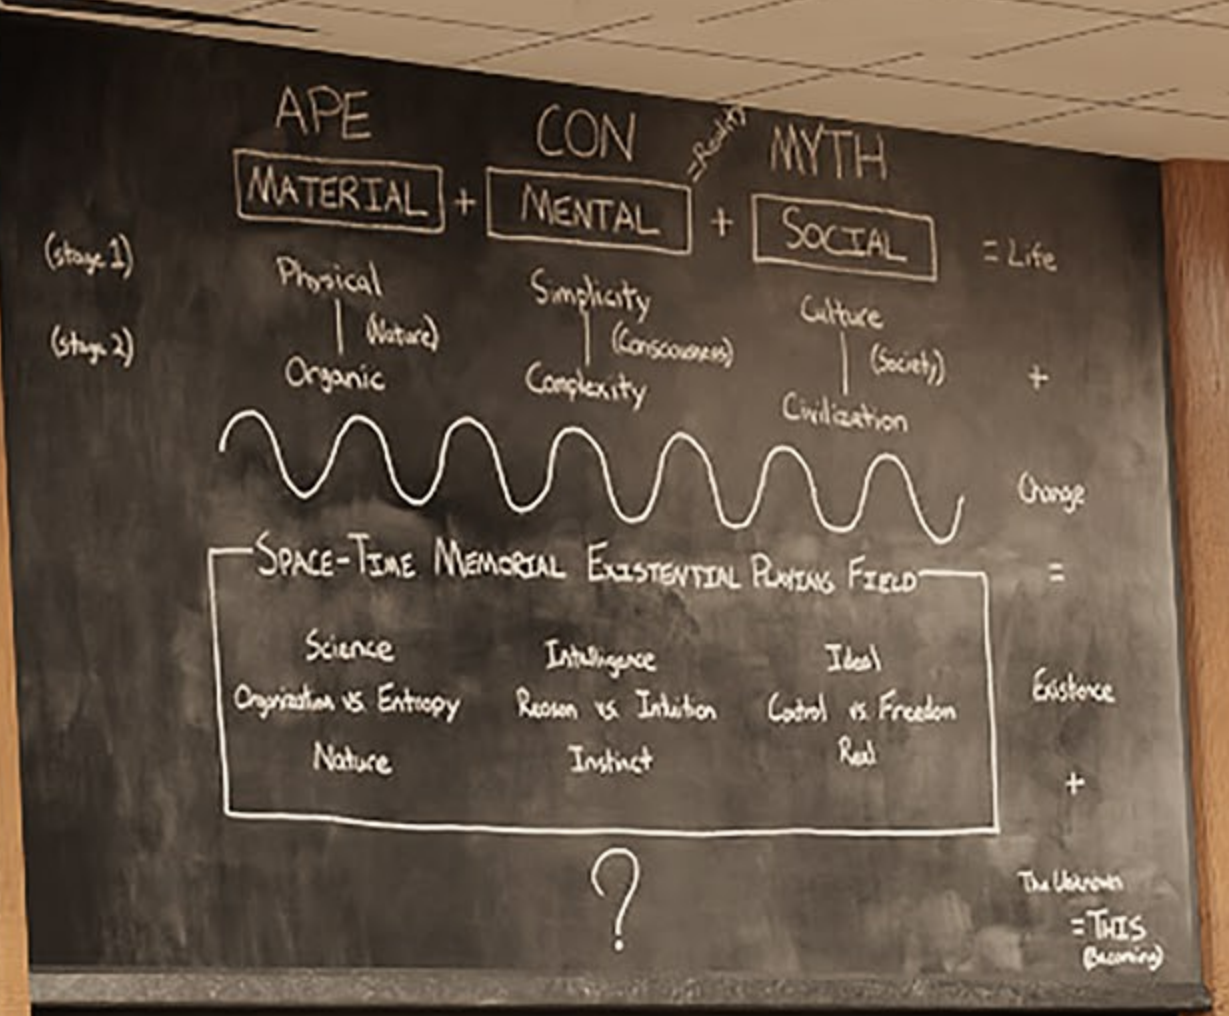 APE CON = Reality MYTH
MATERIAL + MENTAL + SOCIAL = Life
(stage 1) Physical Simplicity Culture
(Nature) (Consciousness) (Society)
(stage 2) Organic Complexity Civilization +
Change
SPACE-TIME MEMORIAL EXISTENTIAL PLAYING FIELD =
Science Intelligence Ideal
Organization vs. Entropy Reason vs. Intuition Control vs. Freedom Existence
Nature Instinct Real
+
?
The Unknown
= THIS
(Becoming)